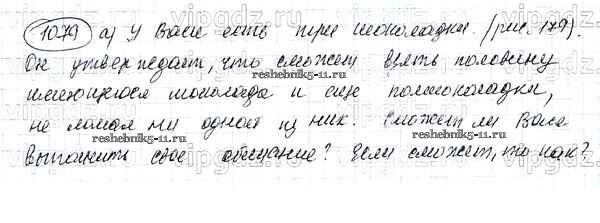 1079 а) У Васи есть три шоколадки. (рис. 179).
Он утверждает, что сможет взять половину
имеющегося шоколада и еще полшоколадки,
не ломая ни одной из них. Сможет ли Вася
выполнить свое обещание? Если сможет, то как?
reshebnik5-11.ru
reshebnik5-11.ru
vipgdz.ru